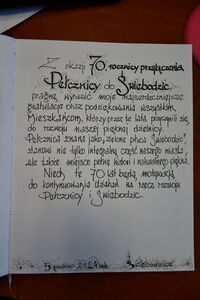 Z okazji 70. rocznicy przyłączenia
Pełcznicy do Świebodzic
pragnę wyrazić moje najserdeczniejsze
gratulacje oraz podziękowania wszystkim
Mieszkańcom, którzy przez te lata przyczynili się
do rozwoju naszej pięknej dzielnicy.
Pełcznica znana jako „zielone płuca Świebodzic”,
stanowi nie tylko integralną część naszego miasta,
ale także miejsce pełne historii i naturalnego piękna.
Niech te 70 lat będą motywacją
do kontynuowania działań na rzecz rozwoju
Pełcznicy i Świebodzic.
5 grudnia 2024 rok Świebodzice